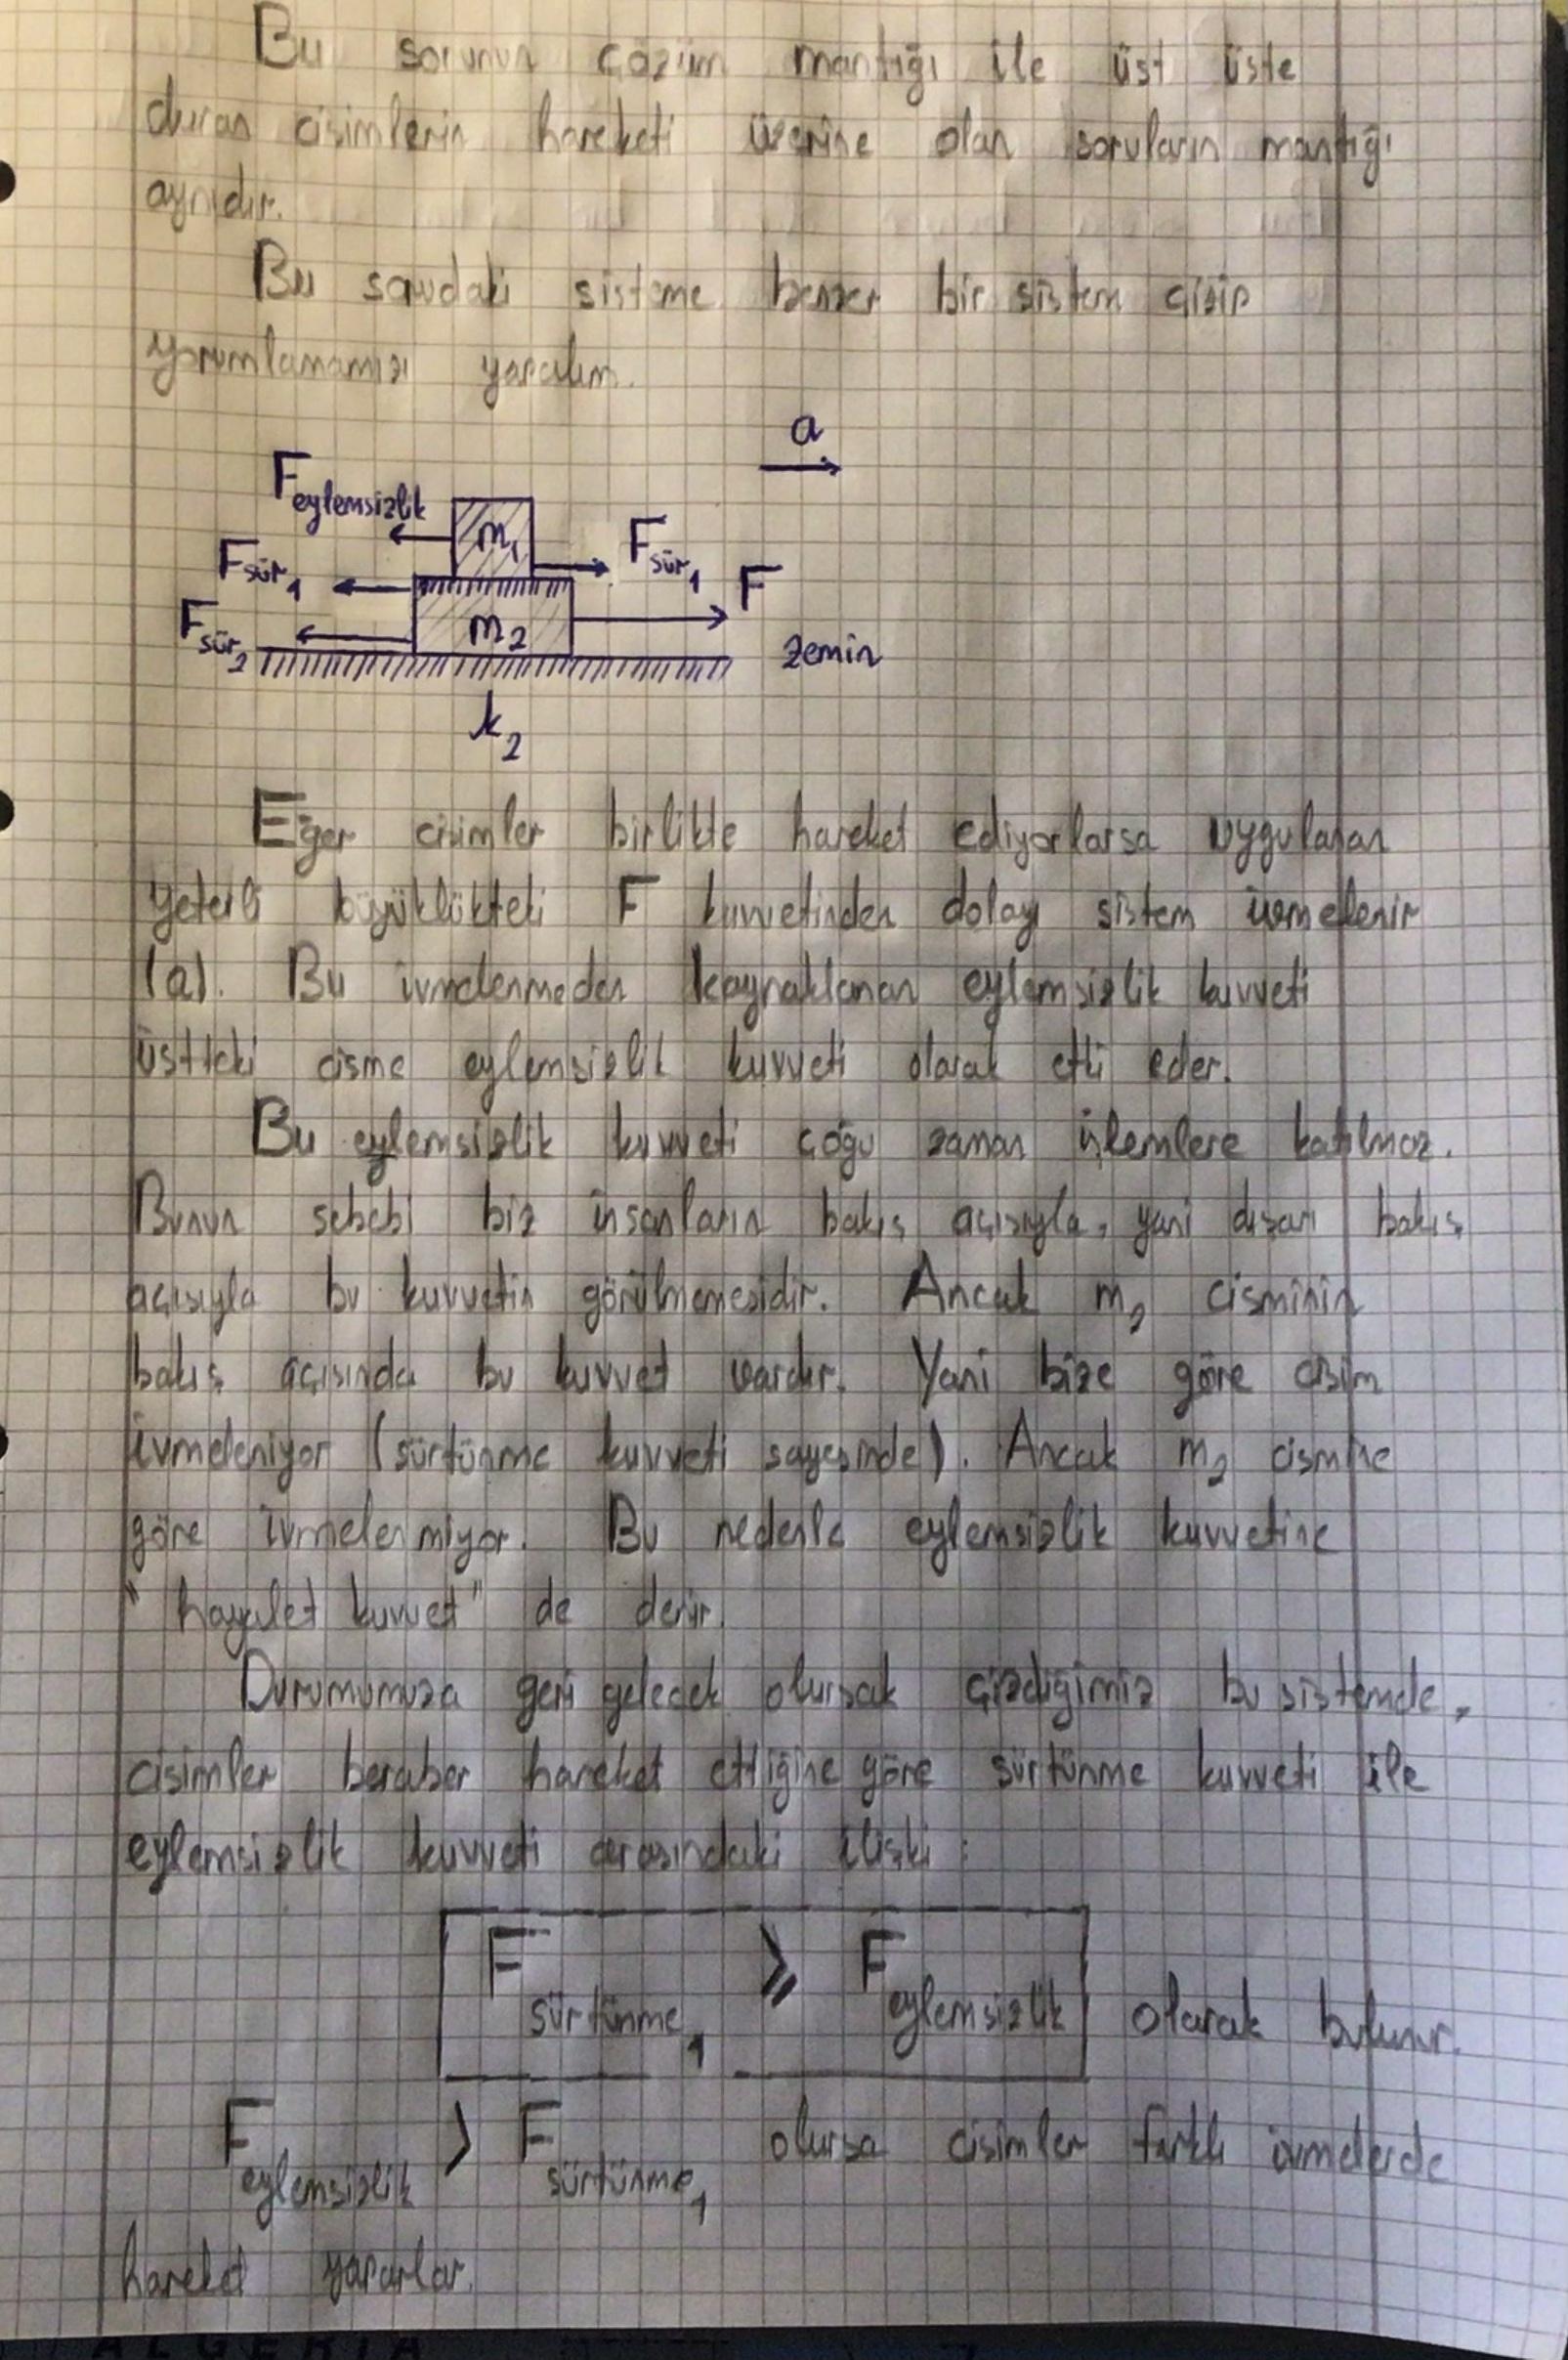 Bu sorunun çözüm mantığı ile üst üste
duran cisimlerin hareketi üzerine olan soruların mantığı
aynıdır.
Bu sorudaki sisteme benzer bir sistem çizip
yorumlamamızı yapalım.
a
F eylemsizlik
m1
F sür1
F sür1
F
m2
F sür2
zemin
k2
Eğer cisimler birlikte hareket ediyorlarsa uygulanan
yeterli büyüklükteki F kuvvetinden dolayı sistem ivmelenir
(a). Bu ivmelenmeden kaynaklanan eylemsizlik kuvveti
üstteki cisme eylemsizlik kuvveti olarak etki eder.
Bu eylemsizlik kuvveti çoğu zaman işlemlere katılmaz.
Bunun sebebi biz insanların bakış açısıyla, yani dışarı bakış
açısıyla bu kuvvetin görülmemesidir. Ancak m2 cisminin
bakış açısında bu kuvvet vardır. Yani bize göre cisim
ivmeleniyor (sürtünme kuvveti sayesinde). Ancak m2 cismine
göre ivmelenmiyor. Bu nedenle eylemsizlik kuvvetine
"hayalet kuvvet" de denir.
Durumumuza geri gelecek olursak çizdiğimiz bu sistemde,
cisimler beraber hareket ettiğine göre sürtünme kuvveti ile
eylemsizlik kuvveti arasındaki ilişki:
F sürtünme1 ⩾ F eylemsizlik olarak bulunur.
F eylemsizlik > F sürtünme1 olursa cisimler farklı ivmelerde
hareket yaparlar.
ALGERIA